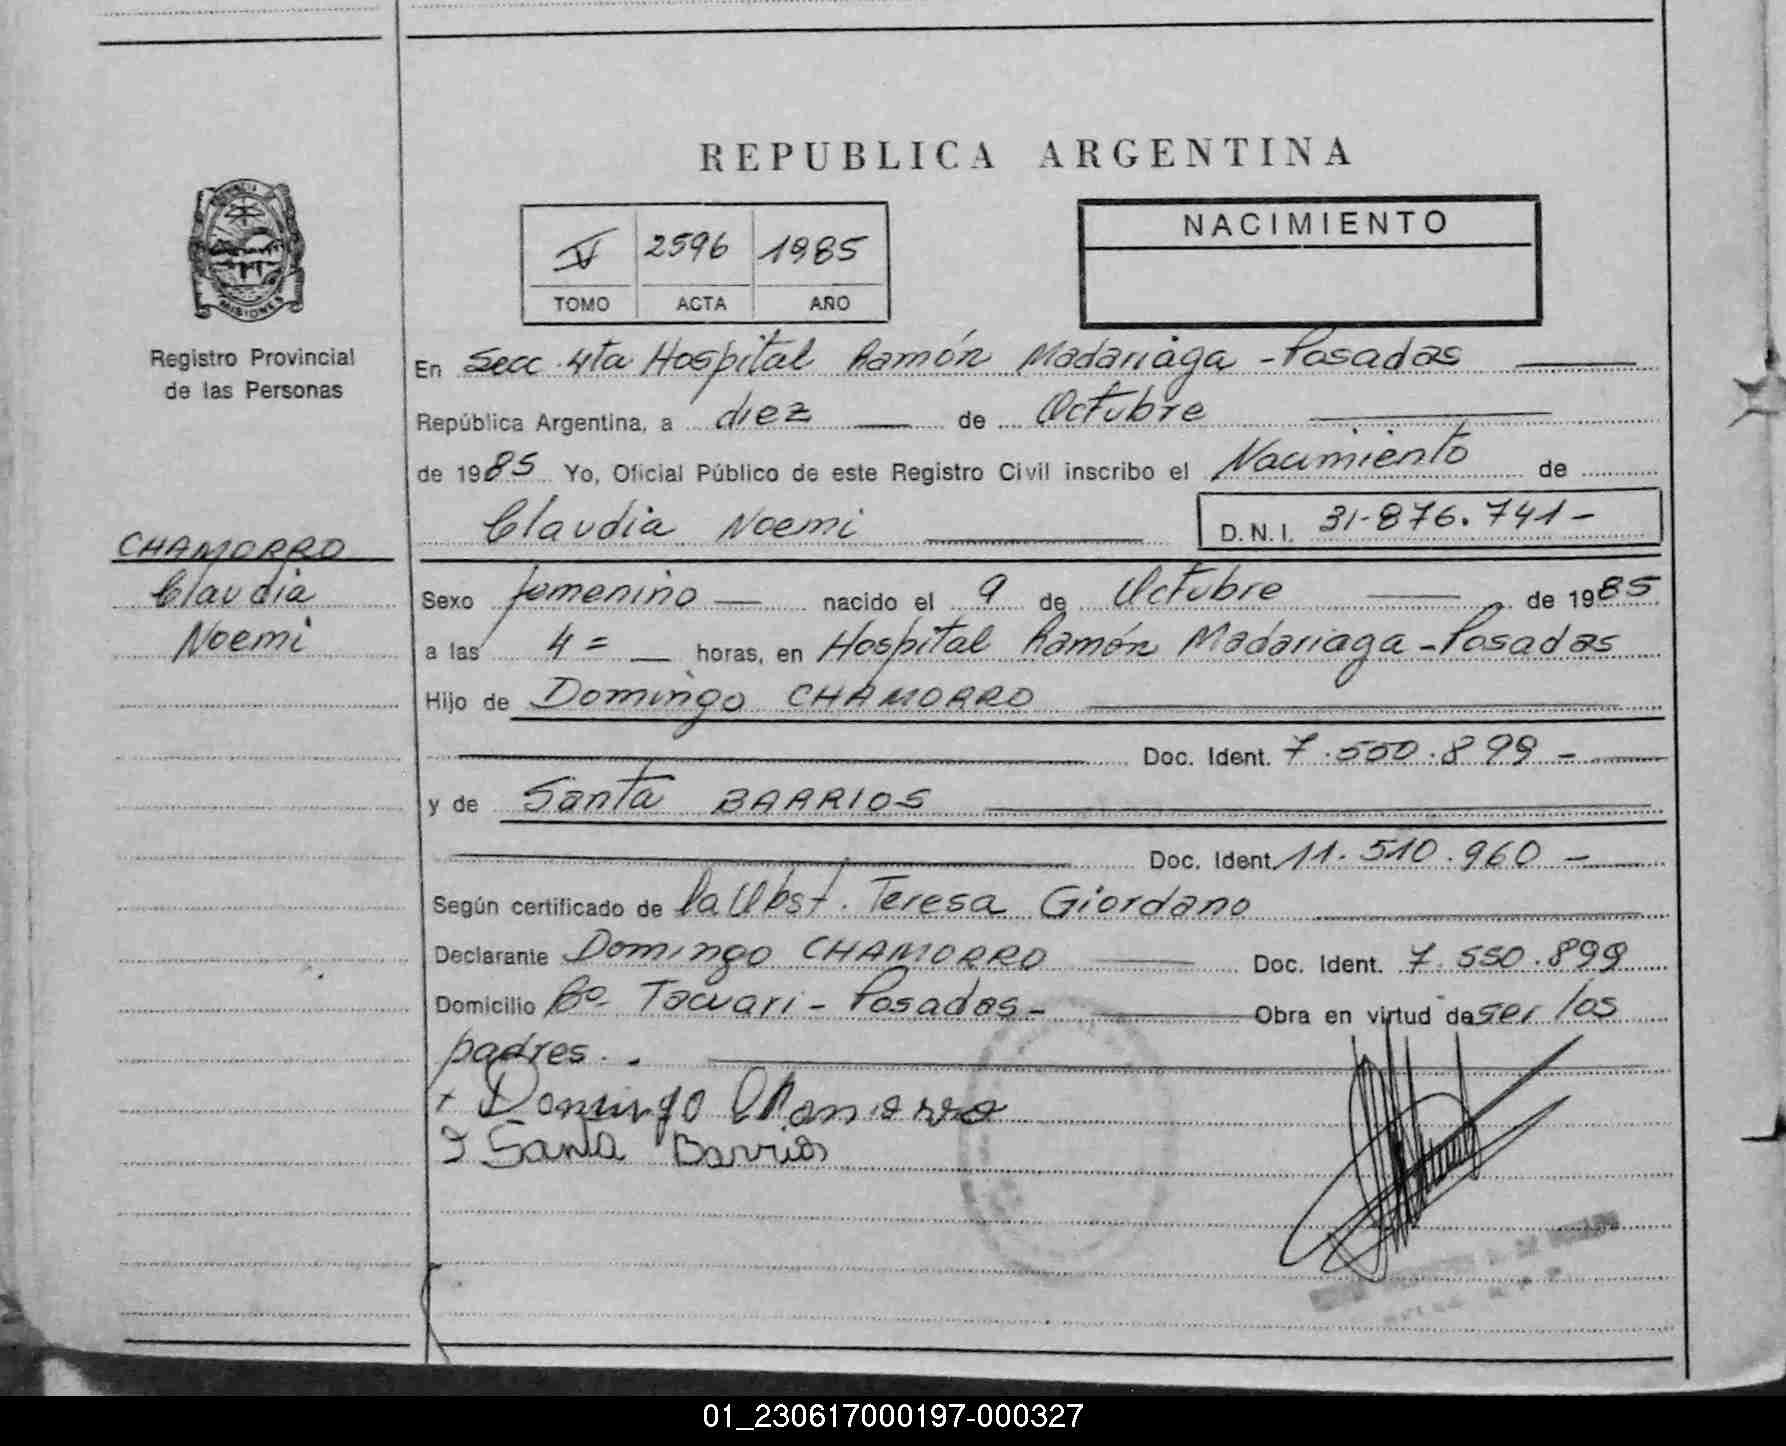 REPUBLICA ARGENTINA
PROVINCIA
MISIONES
Registro Provincial
de las Personas
IV 2596 1985
TOMO ACTA AÑO
NACIMIENTO
En Secc. 4ta Hospital Ramón Madariaga - Posadas
República Argentina, a diez de Octubre
de 1985 Yo, Oficial Público de este Registro Civil inscribo el Nacimiento de
Claudia Noemi D.N.I. 31-876.741-
CHAMORRO
Claudia
Noemi
Sexo femenino nacido el 9 de Octubre de 1985
a las 4= horas, en Hospital Ramón Madariaga - Posadas
Hijo de Domingo CHAMORRO
Doc. Ident. 7.550.899-
y de Santa BARRIOS
Doc. Ident. 11.510.960-
Según certificado de la Obst. Teresa Giordano
Declarante Domingo CHAMORRO Doc. Ident. 7.550.899
Domicilio Bº Tacuari - Posadas - Obra en virtud de ser los
padres.
Domingo Chamorro
Santa Barrios
01_230617000197-000327